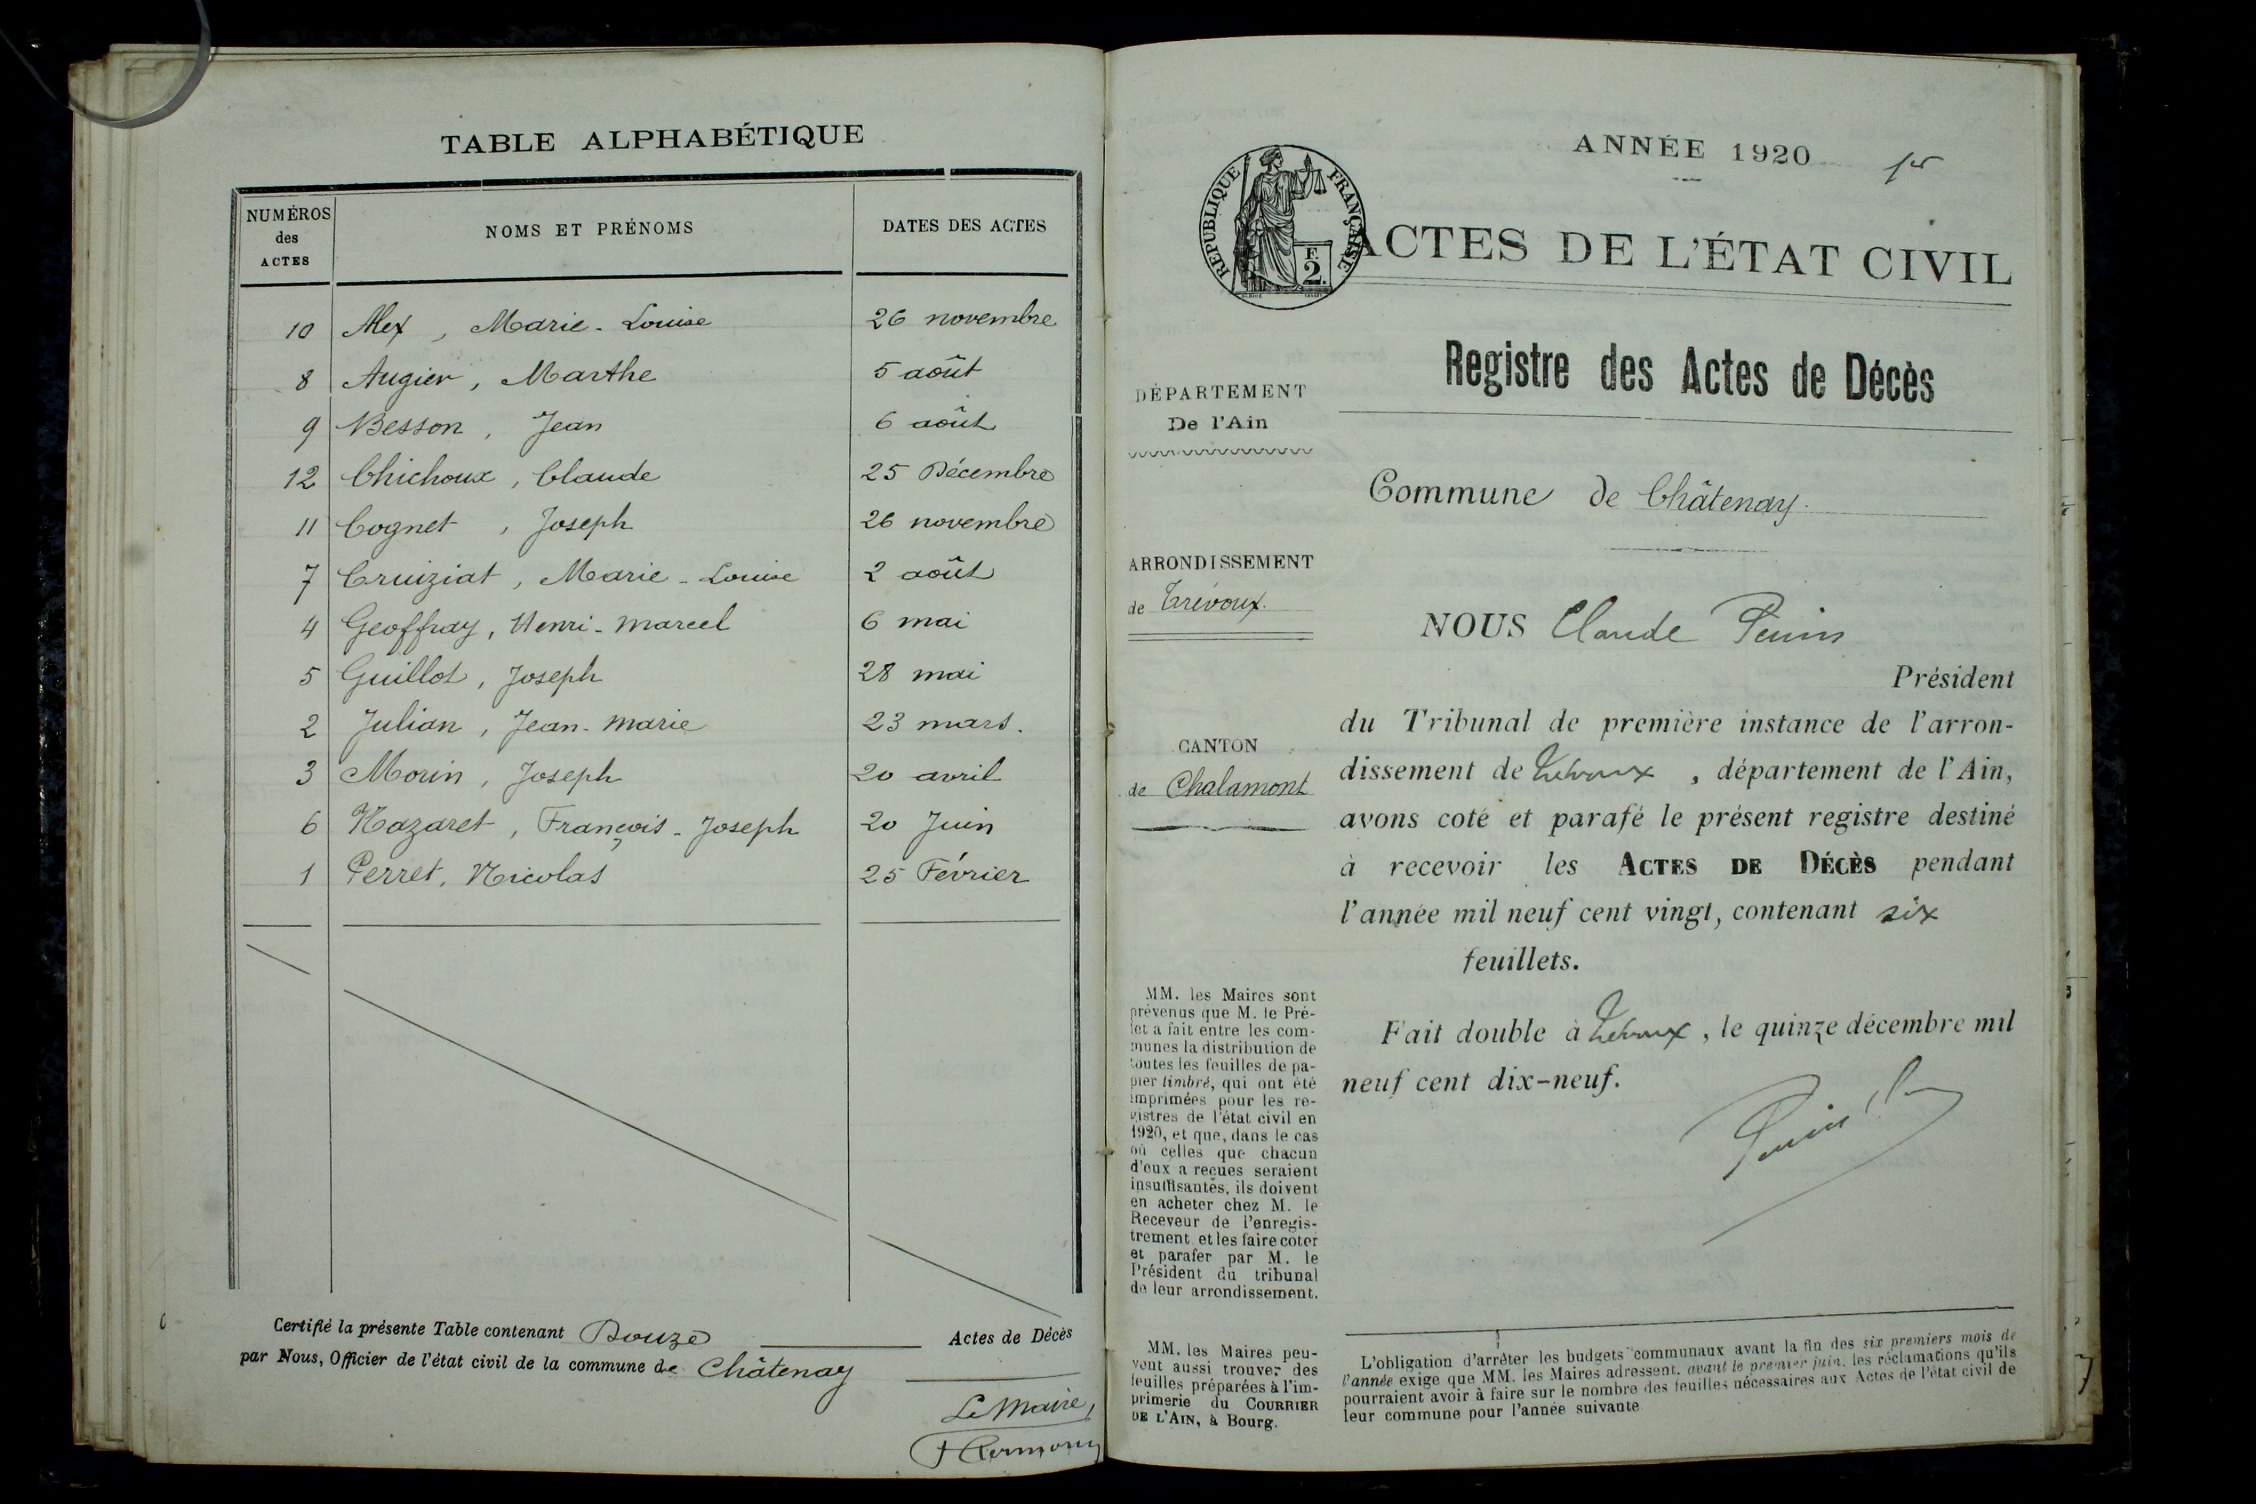 TABLE ALPHABÉTIQUE
NUMÉROS des ACTES NOMS ET PRÉNOMS DATES DES ACTES
10 Alex, Marie-Louise 26 novembre
8 Augier, Marthe 5 août
9 Besson, Jean 6 août
12 Chichoux, Claude 25 Décembre
11 Cognet, Joseph 26 novembre
7 Cruiziat, Marie-Louise 2 août
4 Geoffray, Henri-Marcel 6 mai
5 Guillot, Joseph 28 mai
2 Julian, Jean-Marie 23 mars.
3 Morin, Joseph 20 avril
6 Nazaret, François-Joseph 20 Juin
1 Perret, Nicolas 25 Février
Certifié la présente Table contenant Douze Actes de Décès
par Nous, Officier de l'état civil de la commune de Châtenay
Le Maire,
ANNÉE 1920
RÉPUBLIQUE FRANÇAISE
F. 2.
ACTES DE L'ÉTAT CIVIL
Registre des Actes de Décès
DÉPARTEMENT
De l'Ain
Commune de Châtenay.
ARRONDISSEMENT
de Trévoux.
CANTON
de Chalamont
NOUS Claude
Président
du Tribunal de première instance de l'arron-
dissement de Trévoux, département de l'Ain,
avons coté et parafé le présent registre destiné
à recevoir les ACTES DE DÉCÈS pendant
l'année mil neuf cent vingt, contenant six
feuillets.
Fait double à Trévoux, le quinze décembre mil
neuf cent dix-neuf.
MM. les Maires sont
prévenus que M. le Pré-
fet a fait entre les com-
munes la distribution de
toutes les feuilles de pa-
pier timbré, qui ont été
imprimées pour les re-
gistres de l'état civil en
1920, et que, dans le cas
où celles que chacun
d'eux a reçues seraient
insuffisantes, ils doivent
en acheter chez M. le
Receveur de l'enregis-
trement et les faire coter
et parafer par M. le
Président du tribunal
de leur arrondissement.
MM. les Maires peu-
vent aussi trouver des
feuilles préparées à l'im-
primerie du COURRIER
DE L'AIN, à Bourg.
L'obligation d'arrêter les budgets communaux avant la fin des six premiers mois de
l'année exige que MM. les Maires adressent, avant le premier juin, les réclamations qu'ils
pourraient avoir à faire sur le nombre des feuilles nécessaires aux Actes de l'état civil de
leur commune pour l'année suivante